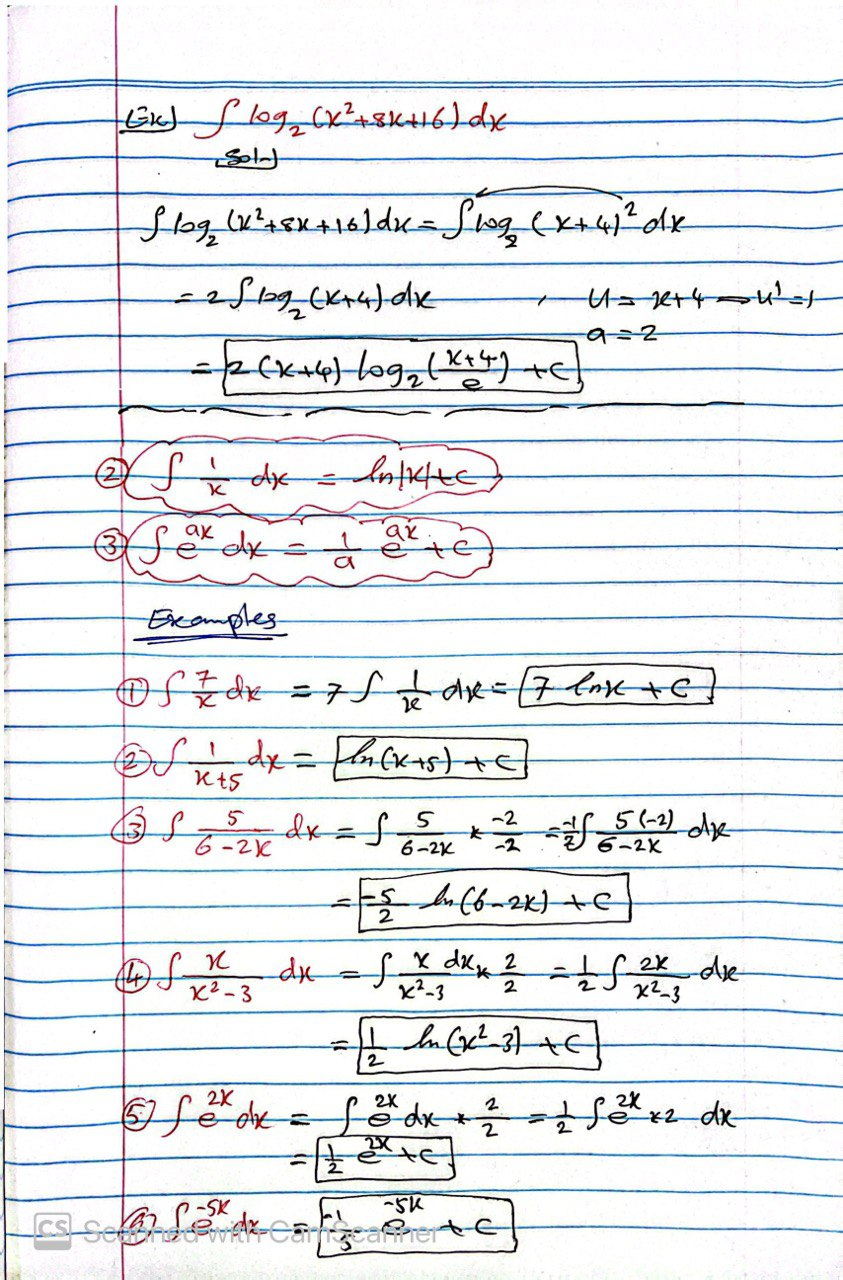 Ex) ∫ log₂ (x²+8x+16) dx
Soln)
∫ log₂ (x²+8x+16) dx = ∫ log₂ (x+4)² dx
= 2 ∫ log₂ (x+4) dx , u = x+4 → u' = 1
a = 2
= 2 (x+4) log₂ ((x+4)/e) + C
② ∫ 1/x dx = ln|x| + C
③ ∫ e^(ax) dx = 1/a e^(ax) + C
Examples
① ∫ 7/x dx = 7 ∫ 1/x dx = 7 ln x + C
② ∫ 1/(x+5) dx = ln(x+5) + C
③ ∫ 5/(6-2x) dx = ∫ 5/(6-2x) * -2/-2 = -1/2 ∫ 5(-2)/(6-2x) dx
= -5/2 ln(6-2x) + C
④ ∫ x/(x²-3) dx = ∫ x dx/(x²-3) * 2/2 = 1/2 ∫ 2x/(x²-3) dx
= 1/2 ln(x²-3) + C
⑤ ∫ e^(2x) dx = ∫ e^(2x) dx * 2/2 = 1/2 ∫ e^(2x) *2 dx
= 1/2 e^(2x) + C
⑥ ∫ e^(-5x) dx = -1/5 e^(-5x) + C
CS Scanned with CamScanner